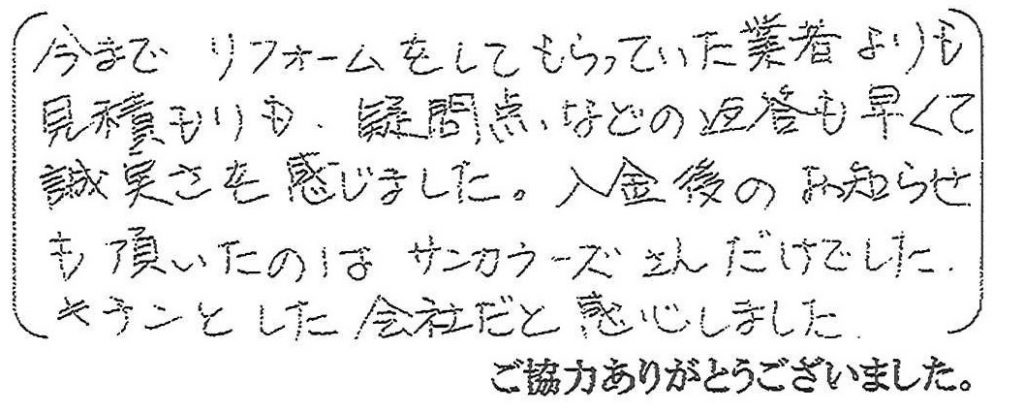 今まで リフォームをしてもらっていた業者よりも
見積もりも、疑問点、などの返答も早くて
誠実さを感じました。入金後のお知らせ
も頂いたのは サンカラーズさんだけでした.
キチンとした会社だと感心しました.
ご協力ありがとうございました。